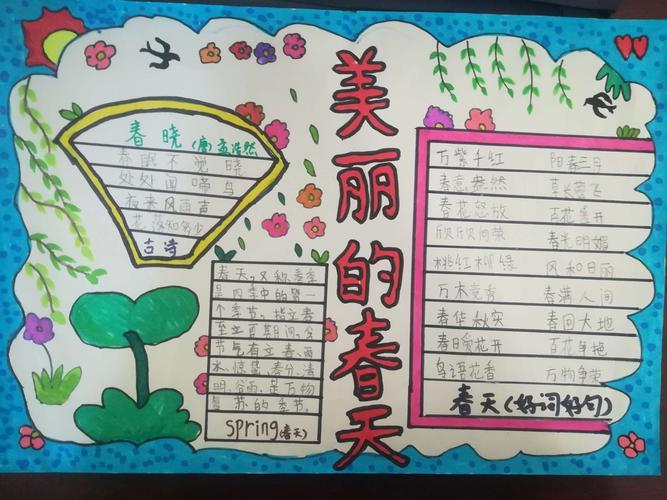 美丽的春天
春晓(唐)孟浩然
春眠不觉晓
处处闻啼鸟
夜来风雨声
花落知多少
古诗
春天,又称春季
是四季中的第一
个季节,指立春
至立夏期间,含
节气有立春、雨
水、惊蛰、春分、清
明、谷雨。是万物
复苏的季节。
spring(春天)
万紫千红 阳春三月
春意盎然 草长莺飞
春花怒放 百花盛开
欣欣向荣 春光明媚
桃红柳绿 风和日丽
万木竞秀 春满人间
春华秋实 春回大地
春日花开 百花争艳
鸟语花香 万物争荣
春天(好词好句)